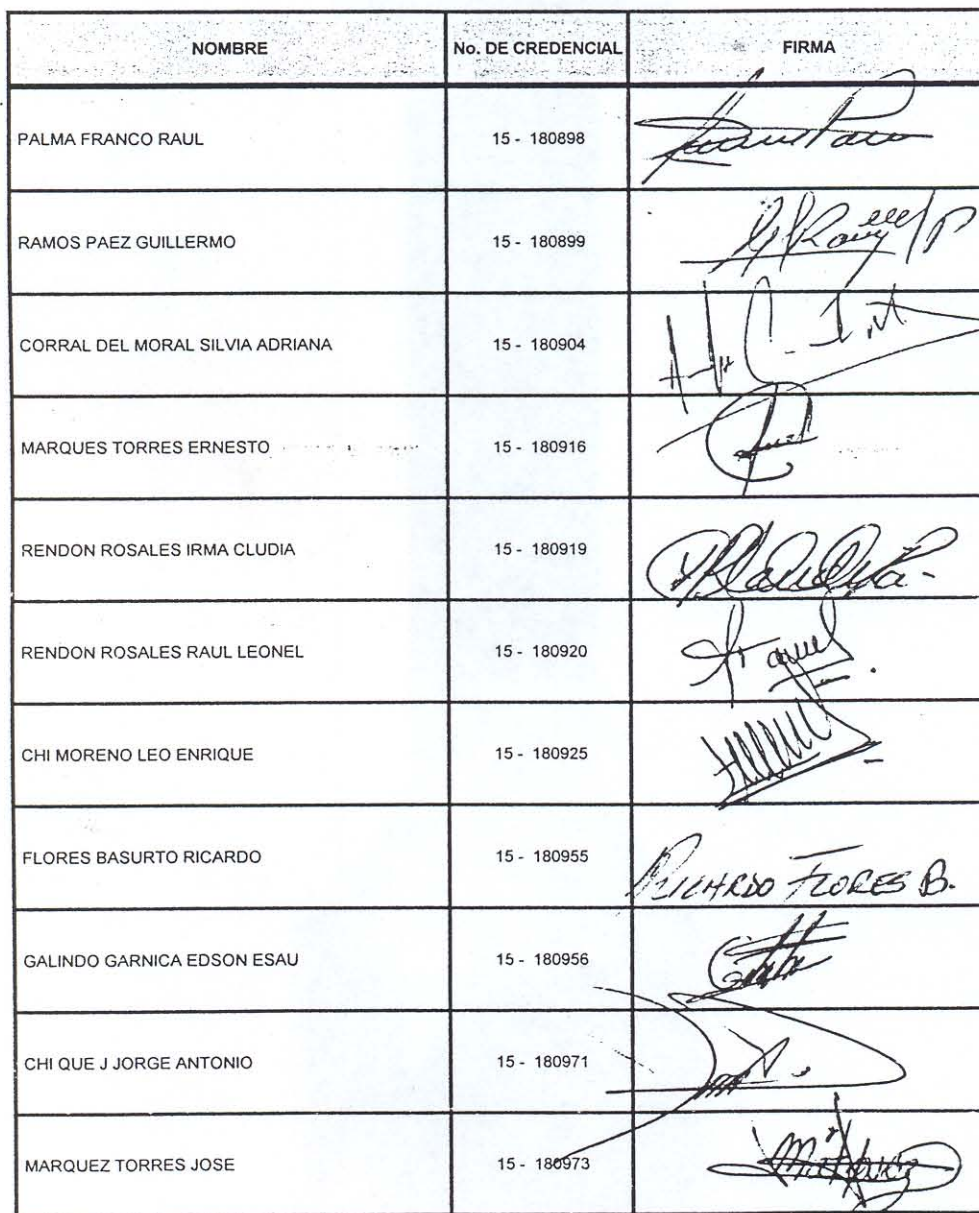 NOMBRE No. DE CREDENCIAL FIRMA
PALMA FRANCO RAUL 15 - 180898
RAMOS PAEZ GUILLERMO 15 - 180899
CORRAL DEL MORAL SILVIA ADRIANA 15 - 180904
MARQUES TORRES ERNESTO 15 - 180916
RENDON ROSALES IRMA CLUDIA 15 - 180919
RENDON ROSALES RAUL LEONEL 15 - 180920
CHI MORENO LEO ENRIQUE 15 - 180925
FLORES BASURTO RICARDO 15 - 180955 RICARDO FLORES B.
GALINDO GARNICA EDSON ESAU 15 - 180956
CHI QUE J JORGE ANTONIO 15 - 180971
MARQUEZ TORRES JOSE 15 - 180973